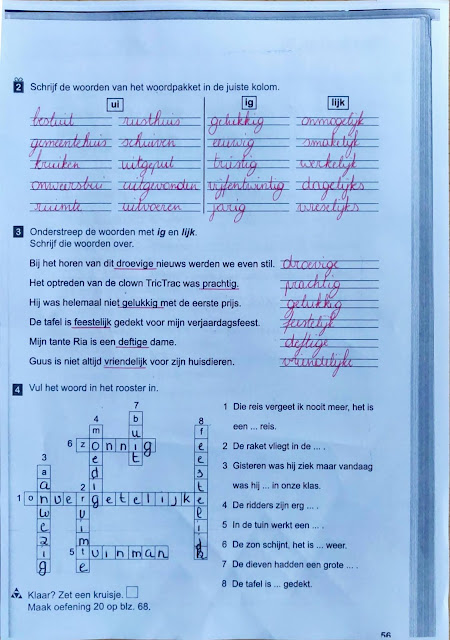 2 Schrijf de woorden van het woordpakket in de juiste kolom.
ui ig lijk
besluit rusthuis gelukkig onmogelijk
gemeentehuis schuiven eeuwig smakelijk
kruiken uitgeput twistig werkelijk
onweersbui uitgevonden vijfentwintig dagelijks
ruimte uitvoeren jarig vreselijks
3 Onderstreep de woorden met ig en lijk.
Schrijf die woorden over.
Bij het horen van dit droevige nieuws werden we even stil. droevige
Het optreden van de clown TricTrac was prachtig. prachtig
Hij was helemaal niet gelukkig met de eerste prijs. gelukkig
De tafel is feestelijk gedekt voor mijn verjaardagsfeest. feestelijk
Mijn tante Ria is een deftige dame. deftige
Guus is niet altijd vriendelijk voor zijn huisdieren. vriendelijk
4 Vul het woord in het rooster in.
1 Die reis vergeet ik nooit meer, het is
een ... reis.
2 De raket vliegt in de ... .
3 Gisteren was hij ziek maar vandaag
was hij ... in onze klas.
4 De ridders zijn erg ... .
5 In de tuin werkt een ... .
6 De zon schijnt, het is ... weer.
7 De dieven hadden een grote ... .
8 De tafel is ... gedekt.
1 onvergetelijke
2 ruimte
3 aanwezig
4 moedig
5 tuinman
6 zonnig
7 buit
8 feestelijk
Klaar? Zet een kruisje.
Maak oefening 20 op blz. 68.
56